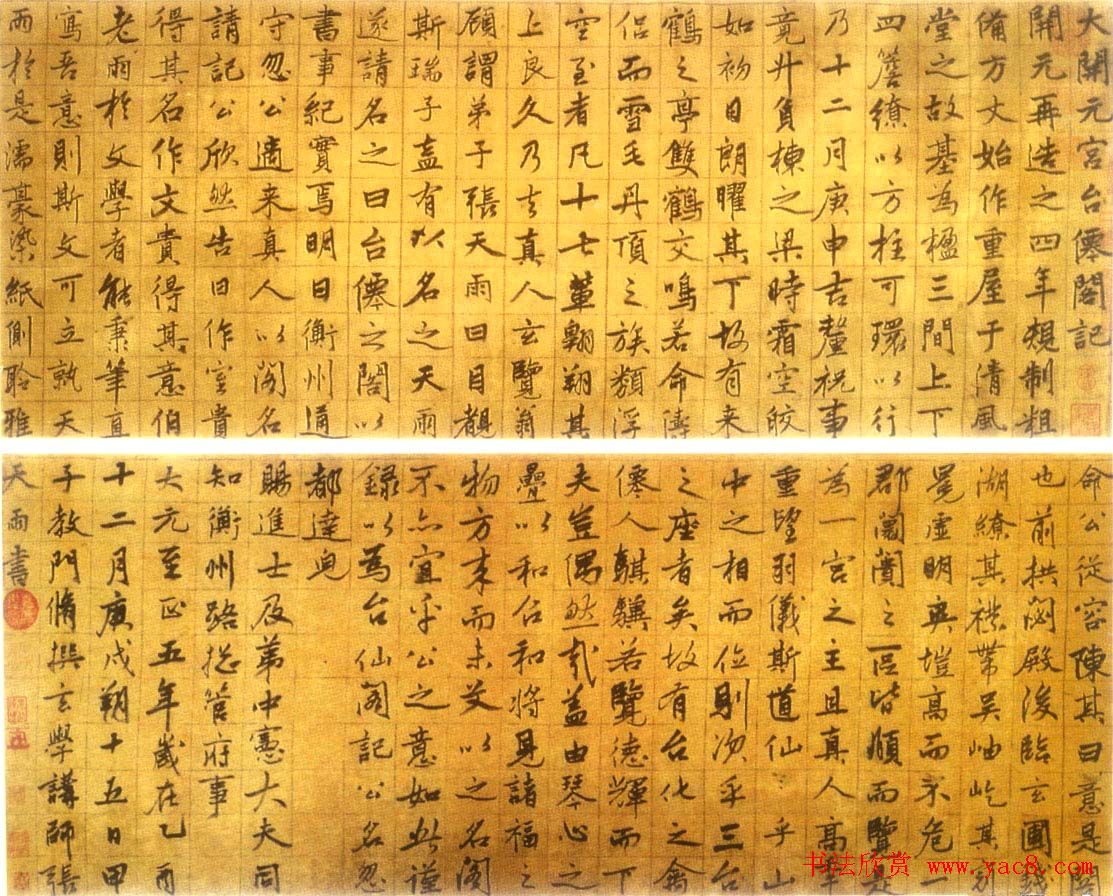 大開元宮台僊閣記
開元再造之四年規制粗
備方丈始作重屋于清風
堂之故基為楹三間上下
四簷繚以方柱可環以行
乃十二月庚申吉釐祝事
竟升負棟之梁時霜空皎
如初日朗曜其下故有来
鶴之亭雙鶴交鳴若命儔
侣而雪毛丹頂之族類浮
空至者凡十七輩翱翔其
上良久乃去真人玄覽翁
顧謂弟子張天雨曰目覩
斯瑞子盍有以名之天雨
遂請名之曰台僊之閣以
書事紀實焉明日衡州通
守忽公適来真人以閣名
請記公欣然告曰作室貴
得其名作文貴得其意伯
老雨於文學者能秉筆直
寫吾意則斯文可立就天
雨於是濡豪染紙側聆雅
命公従容陳其曰意是閣
也前拱閟殿後臨玄圃
湖繚其襟帶吴岫屹其
虚明爽塏高而不危
郡闤闠之區皆順而覽
為一宫之主且真人高年
重望羽儀斯道仙乎山
中之相而位則次乎三台
之座者矣故有台化之禽
僊人騏驥若覽德輝而下
夫豈偶然哉盖由琴心之
疊以和召和将見諸福之
物方来而未艾以之名閣
不亦宜乎公之意如此謹
録以為台仙閣記公名忽
都達皃
賜進士及第中憲大夫同
知衡州路捴管府事
大元至正五年歲在乙酉
十二月庚戌朔十五日甲
子教門脩撰玄學講師張
天雨書
书法欣赏 www.yac8.com